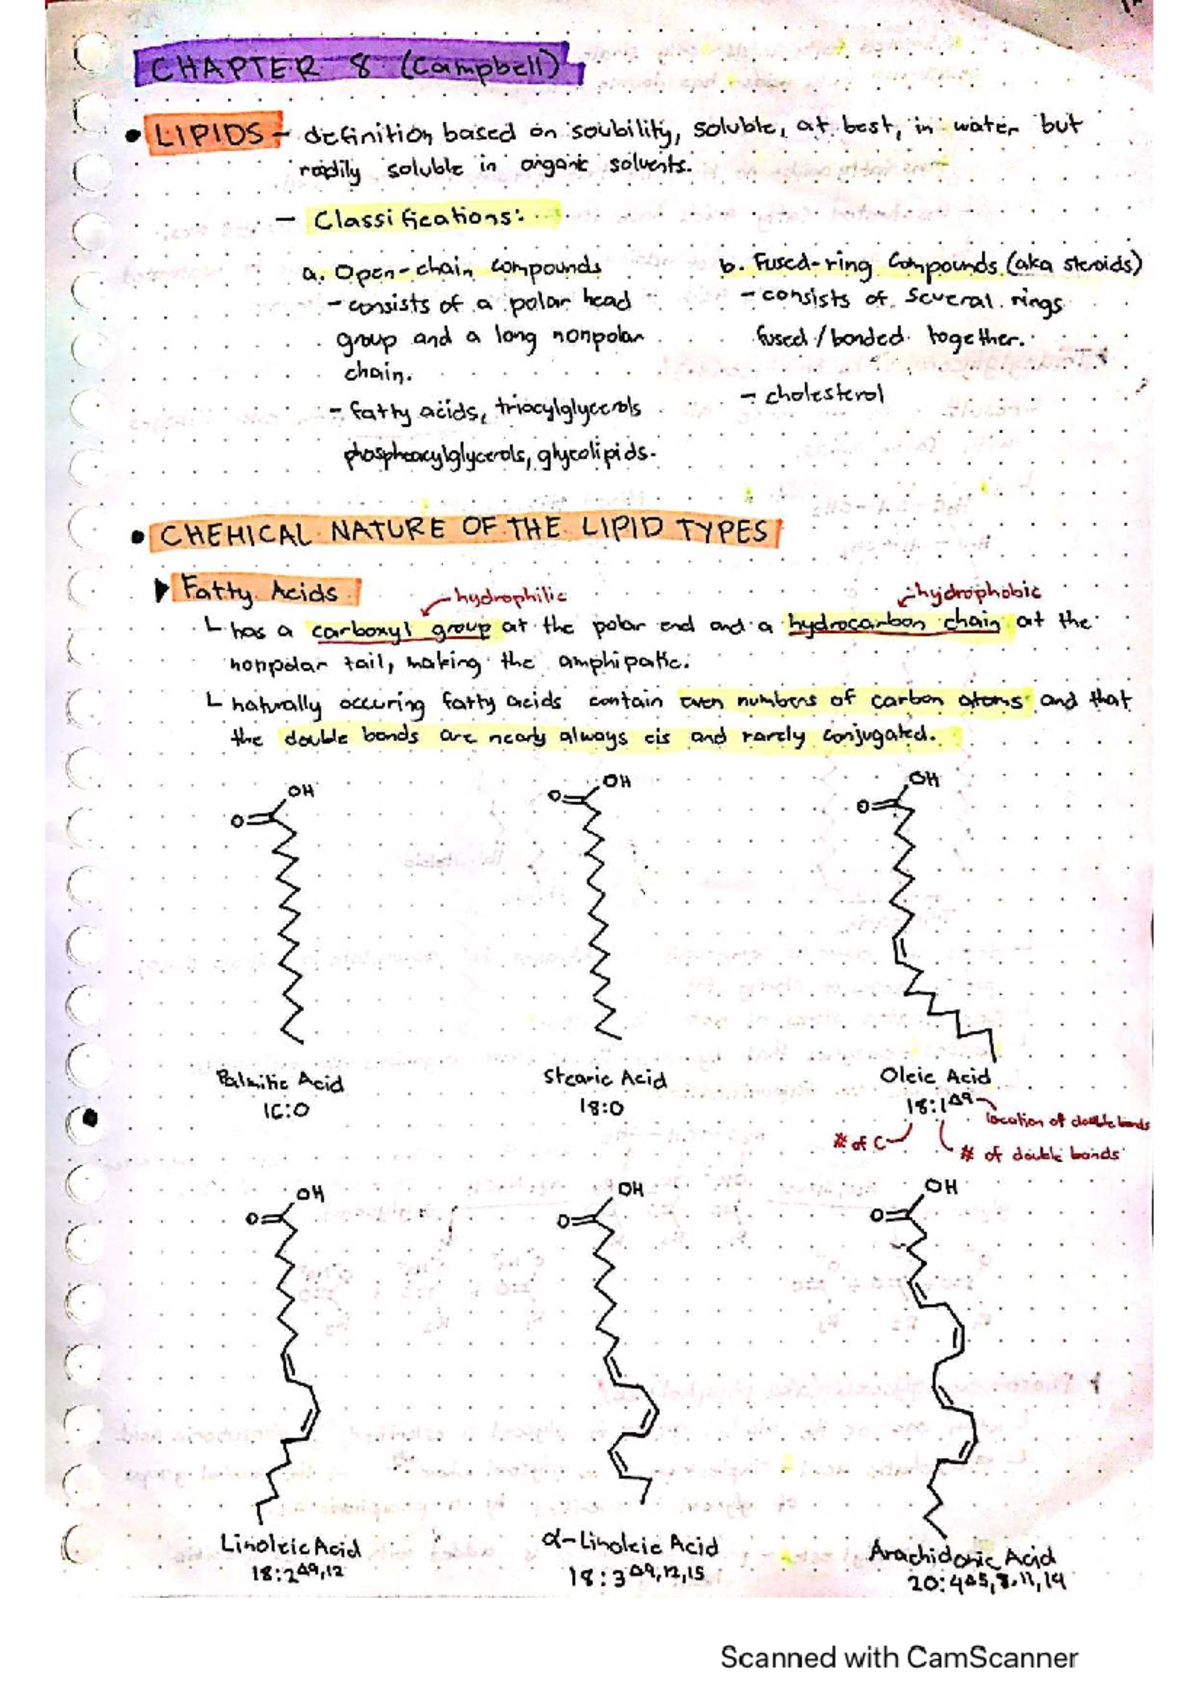 CHAPTER 8 (Campbell)
• LIPIDS - definition based on soubility, soluble, at best, in water but
radily soluble in organic solvents.
- Classifications:
a. Open-chain compounds
- consists of a polar head
group and a long nonpolar
chain.
- fatty acids, triacylglycerols
phosphoacylglycerols, glycolipids.
b. Fused-ring Compounds (aka steroids)
- consists of several rings
fused/bonded together.
- cholesterol
• CHEMICAL NATURE OF THE LIPID TYPES
Fatty Acids
hydrophilic
hydrophobic
has a carboxyl group at the polar end and a hydrocarbon chain at the
nonpolar tail, making the amphipatic.
naturally occuring fatty acids contain even numbers of carbon atoms and that
the double bonds are nearly always cis and rarely conjugated.
OH
O
OH
O
OH
O
Palmitic Acid
16:0
Stearic Acid
18:0
Oleic Acid
18:1Δ9
location of double bonds
# of C
# of double bonds
OH
O
OH
O
OH
O
Linoleic Acid
18:2Δ9,12
α-Linoleic Acid
18:3Δ9,12,15
Arachidonic Acid
20:4Δ5,8,11,14
Scanned with CamScanner